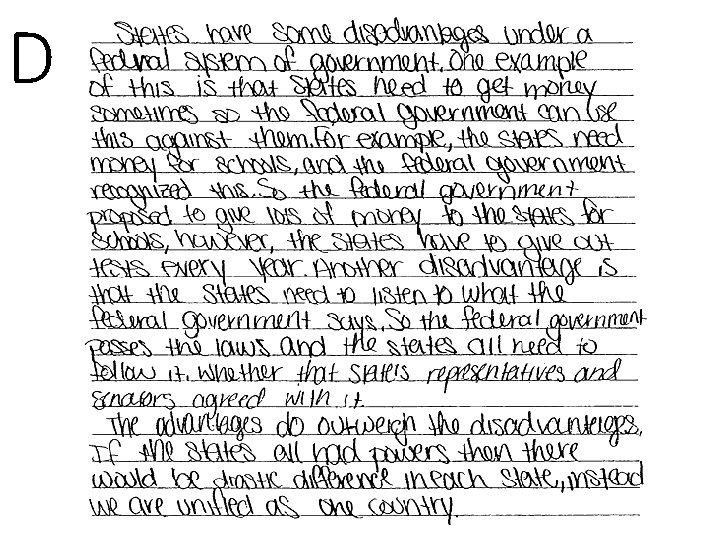 D
States have some disadvantages under a
federal system of government. One example
of this is that states need to get money
sometimes so the federal government can use
this against them. For example, the states need
money for schools, and the federal government
recognized this. So the federal government
proposed to give lots of money to the states for
schools, however, the states have to give out
tests every year. Another disadvantage is
that the states need to listen to what the
federal government says. So the federal government
passes the laws and the states all need to
follow it. Whether that state's representatives and
senators agreed with it.
The advantages do outweigh the disadvantages.
If the states all had powers then there
would be drastic difference in each state, instead
we are unified as one country.